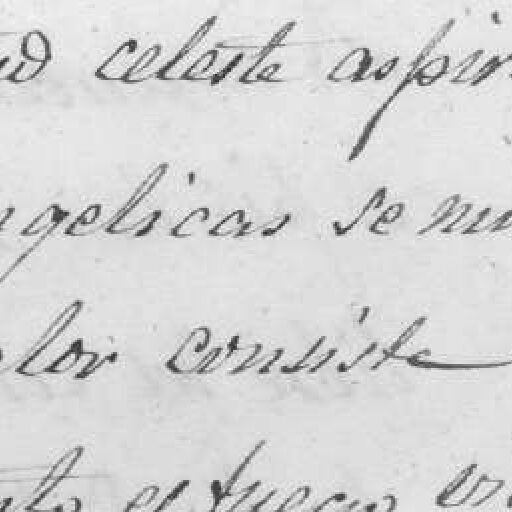 ud celeste aspir
ngelicas se nu
lor consiste
nto el fuego